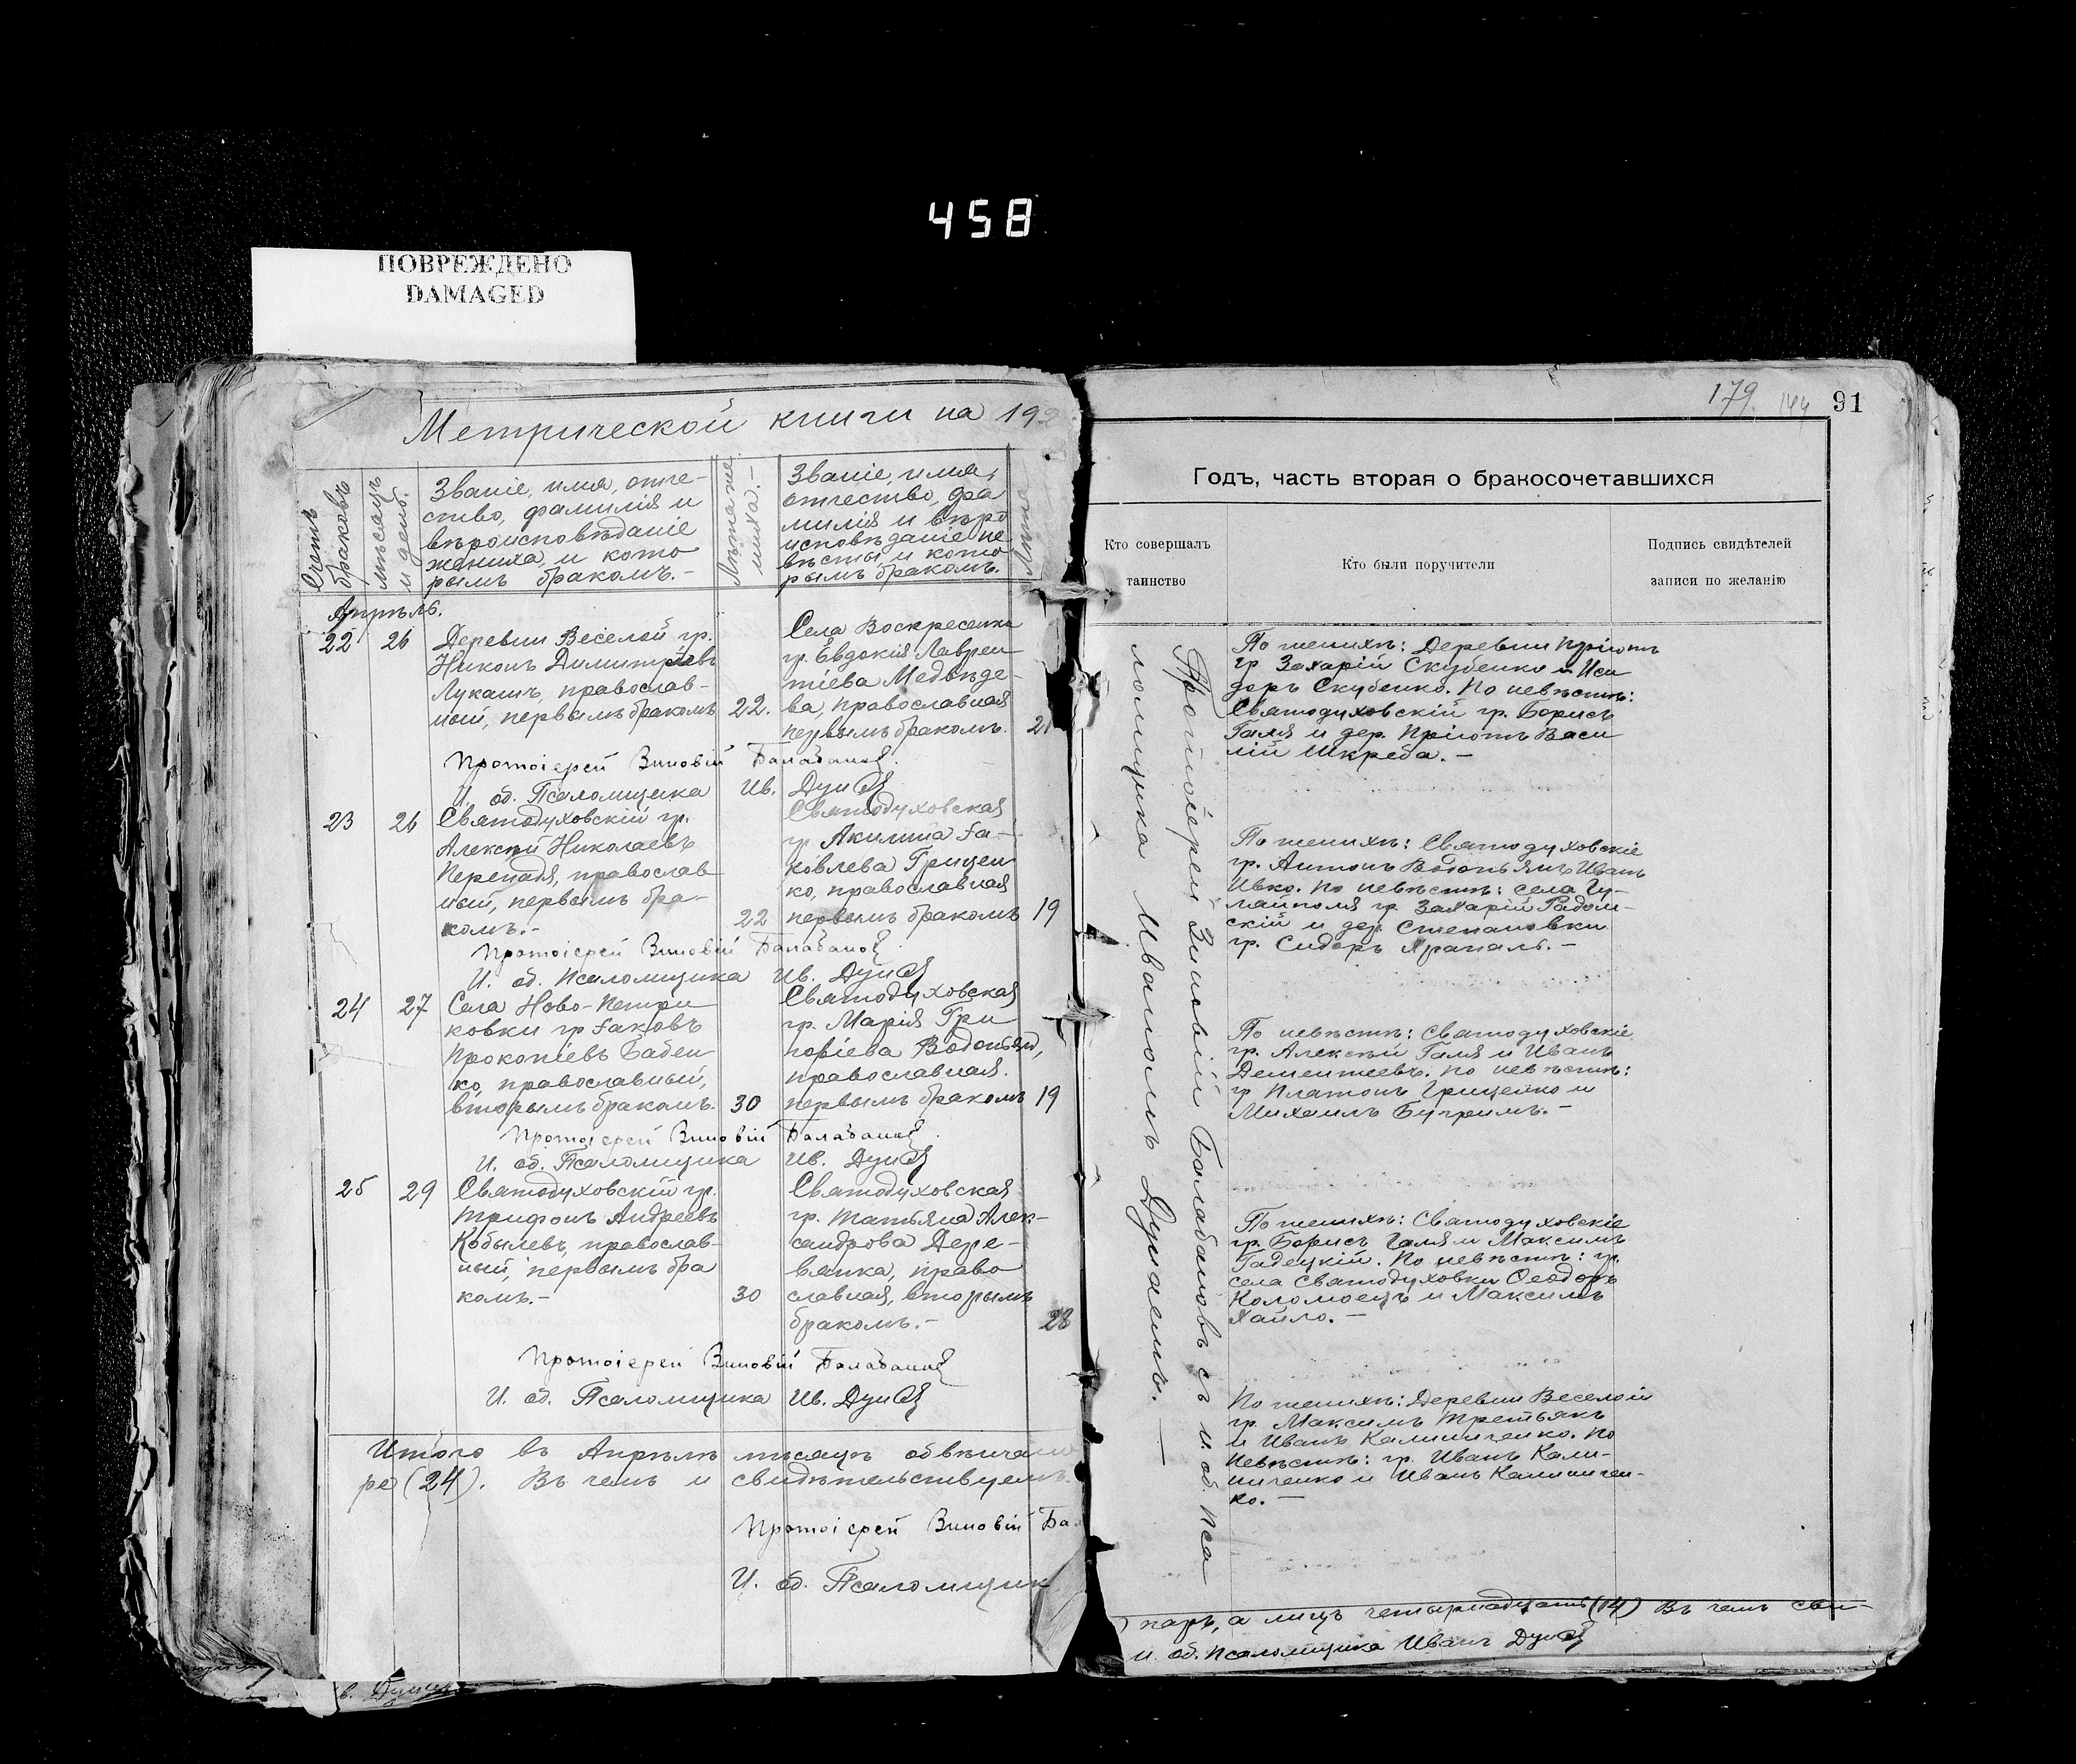 458
ПОВРЕЖДЕНО
DAMAGED
Метрической книги на 192
Счетъ браковъ
мѣсяцъ и день.
Званіе, имя, отче-
ство, фамилія и
вѣроисповѣданіе
жениха, и кото
рымъ бракомъ.-
Лѣта же
ниха.-
Званіе, имя,
отчество, фа
милія и вѣро
исповѣданіе не
вѣсты, и кото
рымъ бракомъ.
Лѣта
Апрѣль.
22
26
Деревни Веселой гр.
Никонъ Димитріевъ
Лукашъ, православ-
ный, первымъ бракомъ
22.
Села Воскресенка
гр. Евдокія Лаврен
тіева Медвѣде-
ва, православная
первымъ бракомъ.
21
Протоіерей Зиновій Балабановъ.
И. об. Псаломщика Ив. Дунай
23
26
Святодуховскій гр.
Алексѣй Николаевъ
Перепадя, православ
ный, первымъ бра-
комъ.-
22
Святодуховская
гр Акилина Іа-
ковлева Грицен
ко, православная
первымъ бракомъ
19
Протоіерей Зиновій Балабановъ.
И. об. Псаломщика Ив. Дунай
24
27
Села Ново-Петри
ковки гр Іаковъ
Прокопіевъ Бабен
ко, православный,
вторымъ бракомъ.
30
Святодуховская
гр. Марія Гри
горіева Водопьян,
православная.
первымъ бракомъ
19
Протоіерей Зиновій Балабановъ.
И. об. Псаломщика Ив. Дунай
25
29
Святодуховскій гр.
Трифонъ Андреевъ
Кобылевъ, православ-
ный, первымъ бра
комъ.-
30
Святодуховская
гр. Татьяна Алек-
сандрова Дере-
вянка, право
славная, вторымъ
бракомъ.-
28
Протоіерей Зиновій Балабановъ
И. об. Псаломщика Ив. Дунай
Итого въ Апрѣлѣ мѣсяцѣ обвѣнчано
ре (24). Въ чемъ и свидѣтельствуемъ.
Протоіерей Зиновій Бал
И. об. Псаломщик
в. Дунай
179. 144 91
Годъ, часть вторая о бракосочетавшихся
Кто совершалъ
таинство
Кто были поручители
Подпись свидѣтелей
записи по желанію
Протоіерей Зиновій Балабановъ съ и. об. Пса
ломщика Иваномъ Дунаемъ. —
По женихѣ: Деревни Пріютъ
гр. Захарій Скубенко и Иси
доръ Скубенко. По невѣстѣ:
Святодуховскій гр. Борисъ
Галя и дер. Пріютъ Васи
лій Шкреба. -
По женихѣ: Святодуховскіе
гр. Антонъ Водопьянъ Иванъ
Ивко. По невѣстѣ: села Гу-
ляйполя гр. Захарій Радом-
скій и дер. Степановки
гр. Сидоръ Храпаль. -
По невѣстѣ: Святодуховскіе
гр. Алексѣй Галя и Иванъ
Дементьевъ. По невѣстѣ:
гр Платонъ Гриценко и
Михаилъ Бугримъ. -
По женихѣ: Святодуховскіе
гр. Борисъ Галя и Максимъ
Гадецкій. По невѣстѣ: гр.
села Святодуховки Ѳеодоръ
Коломоецъ и Максимъ
Хайло. -
По женихѣ: Деревни Веселой
гр. Максимъ Третьякъ
и Иванъ Калиниченко. По
невѣстѣ: гр. Иванъ Кали-
ниченко и Иванъ Калиничен-
ко. -
) паръ, а лицъ четырнадцать (14) Въ чемъ сви-
и. об. псаломщика Иванъ Дунай